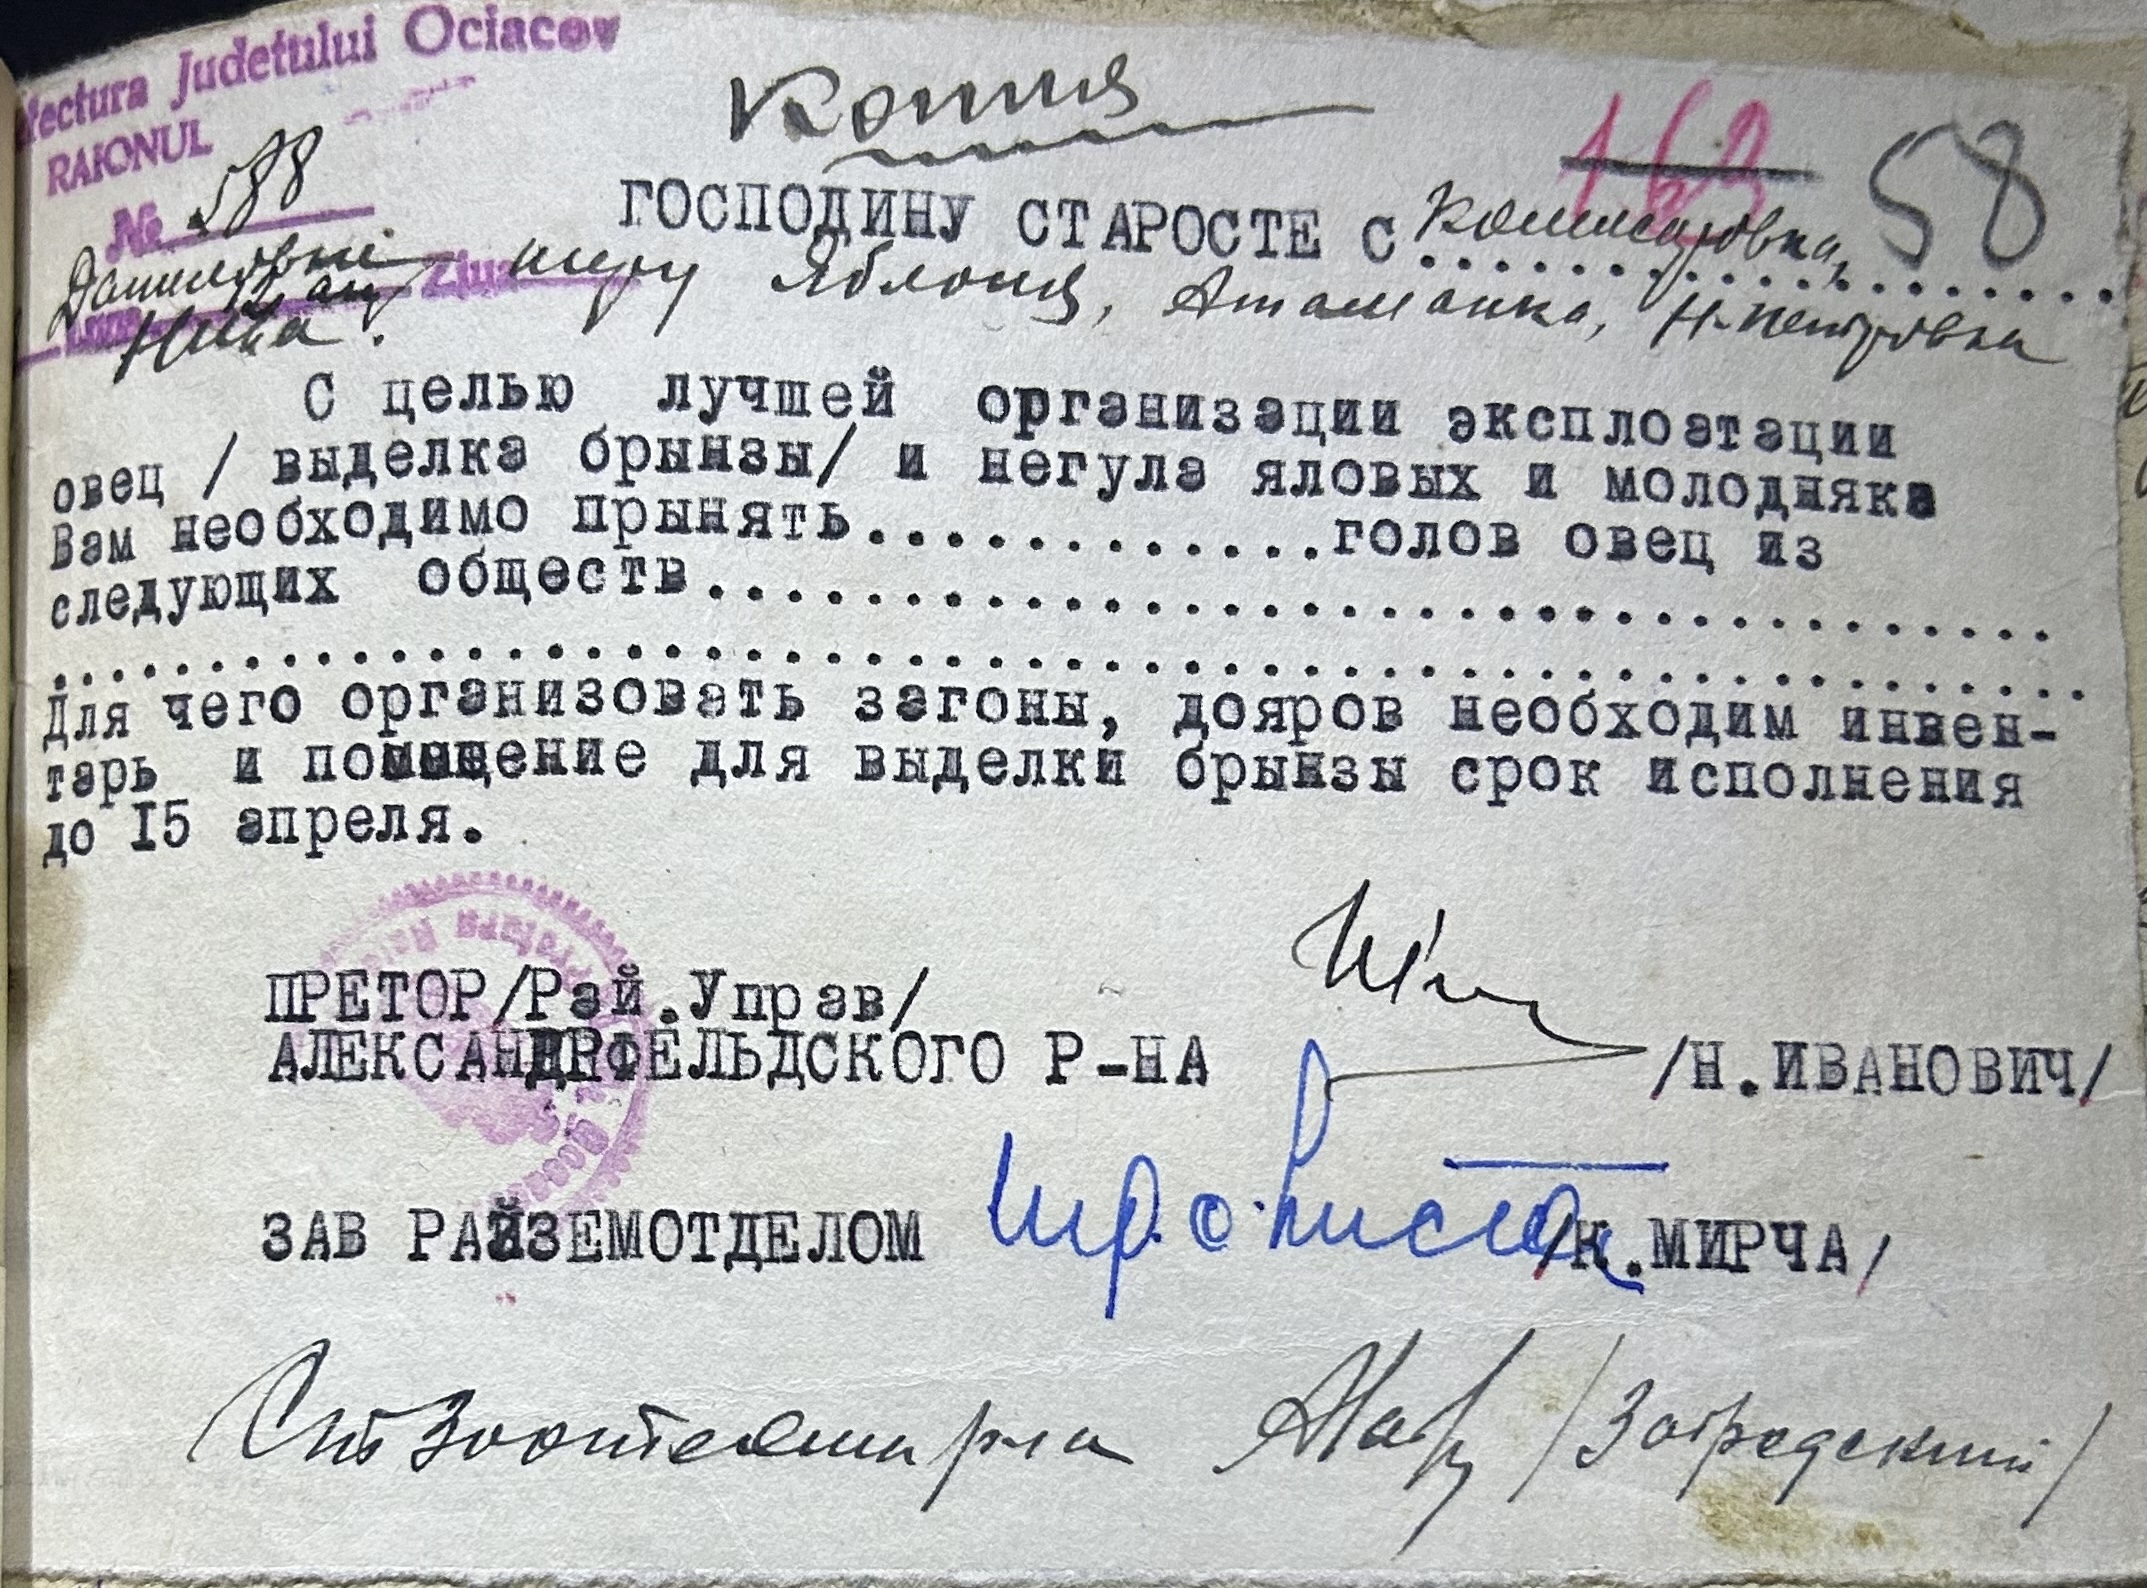 fectura Judetului Ociacov
RAIONUL
№ 588
Ziua
Копия
163 58
ГОСПОДИНУ СТАРОСТЕ С Комисаровка,
Яблоня, Атаманка, Н-Петровка
С целью лучшей организации эксплоатации
овец / выделка брынзы/ и негула яловых и молодняка
Вам необходимо прынять............голов овец из
следующих обществ....................................
.......................................................
Для чего организовать загоны, дояров необходим инвен-
тарь и помещение для выделки брынзы срок исполнения
до 15 апреля.
ПРЕТОР/Рай.Управ/
АЛЕКСАНДРФЕЛЬДСКОГО Р-НА /Н.ИВАНОВИЧ/
ЗАВ РАЙЗЕМОТДЕЛОМ /К.МИРЧА/
Ст Зоотехник р-на /Загродский/